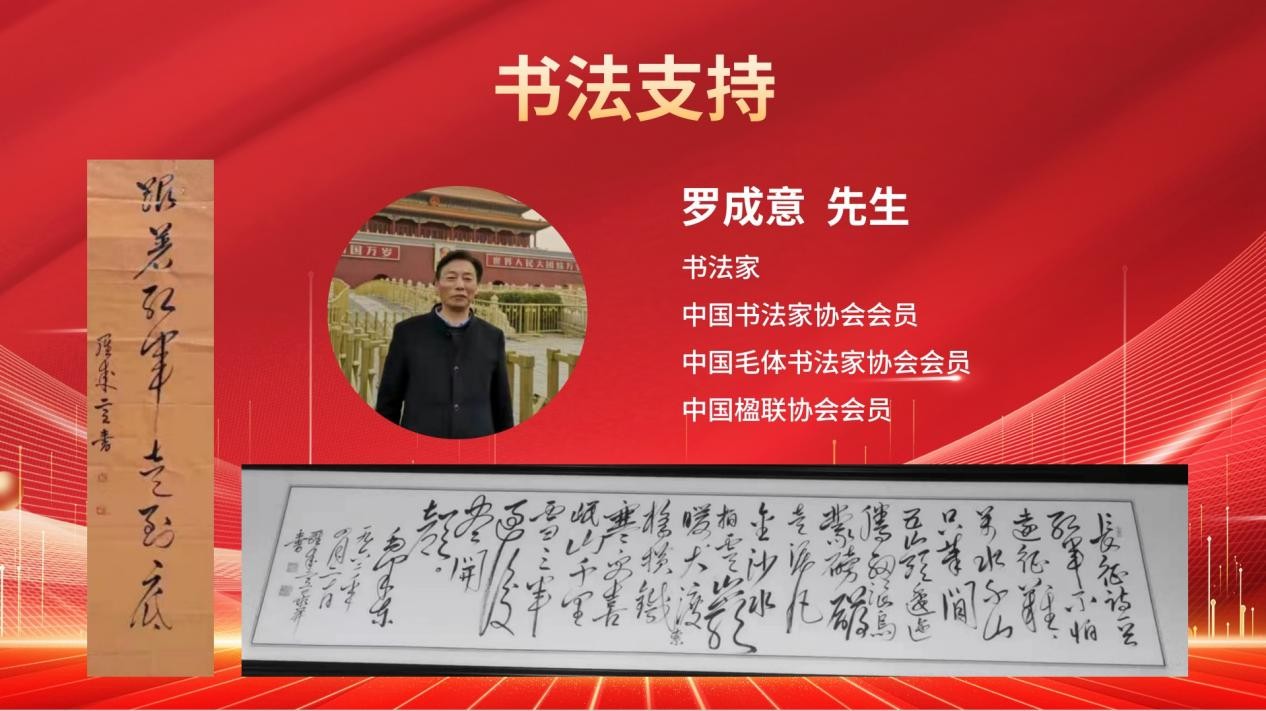 书法支持
跟着红军走到底
罗成意书
国万岁
世界人民大团结万
罗成意 先生
书法家
中国书法家协会会员
中国毛体书法家协会会员
中国楹联协会会员
长征诗一首
红军不怕
远征难
万水千山
只等闲
五岭逶迤
腾细浪乌
蒙磅礴
走泥丸
金沙水
拍云崖
暖大渡
桥横铁
索
寒更喜
岷山千里
雪三军
过后
尽开
颜
毛泽东
一九六二年
四月二十日